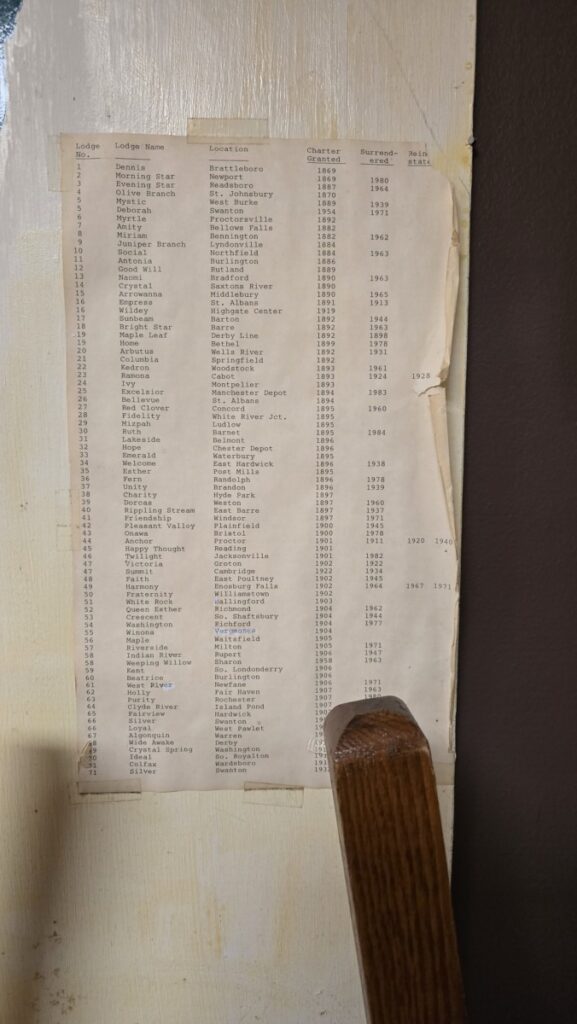 Lodge No. Lodge Name Location Charter Granted Surrend-ered Rein state
1 Dennis Brattleboro 1869
2 Morning Star Newport 1869 1980
3 Evening Star Readsboro 1887 1964
4 Olive Branch St. Johnsbury 1870
5 Mystic West Burke 1889 1939
5 Deborah Swanton 1954 1971
6 Myrtle Proctorsville 1892
7 Amity Bellows Falls 1882
8 Miriam Bennington 1882 1962
9 Juniper Branch Lyndonville 1884
10 Social Northfield 1884 1963
11 Antonia Burlington 1886
12 Good Will Rutland 1889
13 Naomi Bradford 1890 1963
14 Crystal Saxtons River 1890
15 Arrowanna Middlebury 1890 1965
16 Empress St. Albans 1891 1913
16 Wildey Highgate Center 1919
17 Sunbeam Barton 1892 1944
18 Bright Star Barre 1892 1963
19 Maple Leaf Derby Line 1892 1898
19 Home Bethel 1899 1978
20 Arbutus Wells River 1892 1931
21 Columbia Springfield 1892
22 Kedron Woodstock 1893 1961
23 Ramona Cabot 1893 1924 1928
24 Ivy Montpelier 1893
25 Excelsior Manchester Depot 1894 1983
26 Bellevue St. Albans 1894
27 Red Clover Concord 1895 1960
28 Fidelity White River Jct. 1895
29 Mizpah Ludlow 1895
30 Ruth Barnet 1895 1984
31 Lakeside Belmont 1896
32 Hope Chester Depot 1896
33 Emerald Waterbury 1895
34 Welcome East Hardwick 1896 1938
35 Esther Post Mills 1895
36 Fern Randolph 1896 1978
37 Unity Brandon 1896 1939
38 Charity Hyde Park 1897
39 Dorcas Weston 1897 1960
40 Rippling Stream East Barre 1897 1937
41 Friendship Windsor 1897 1971
42 Pleasant Valley Plainfield 1900 1945
43 Onawa Bristol 1900 1978
44 Anchor Proctor 1901 1911 1920 1940
45 Happy Thought Reading 1901
46 Twilight Jacksonville 1901 1982
47 Victoria Groton 1902 1922
47 Summit Cambridge 1922 1934
48 Faith East Poultney 1902 1945
49 Harmony Enosburg Falls 1902 1964 1967 1971
50 Fraternity Williamstown 1902
51 White Rock Wallingford 1903
52 Queen Esther Richmond 1904 1962
53 Crescent So. Shaftsbury 1904 1944
54 Washington Richford 1904 1977
55 Winona Vergennes 1904
56 Maple Waitsfield 1905
57 Riverside Milton 1905 1971
58 Indian River Rupert 1906 1947
58 Weeping Willow Sharon 1958 1963
59 Kent So. Londonderry 1906
60 Beatrice Burlington 1906
61 West River Newfane 1906 1971
62 Holly Fair Haven 1907 1963
63 Purity Rochester 1907 1980
64 Clyde River Island Pond 1907
65 Fairview Hardwick
66 Silver Swanton
66 Loyal West Pawlet
67 Algonquin Warren
Wide Awake Derby
Crystal Spring Washington
Ideal So. Royalton
Colfax Wardsboro
71 Silver Swanton